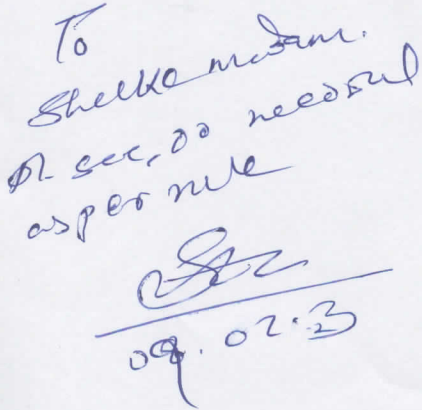 To
Shelke madam.
Pl. see, do needful
as per rule
09.02.23